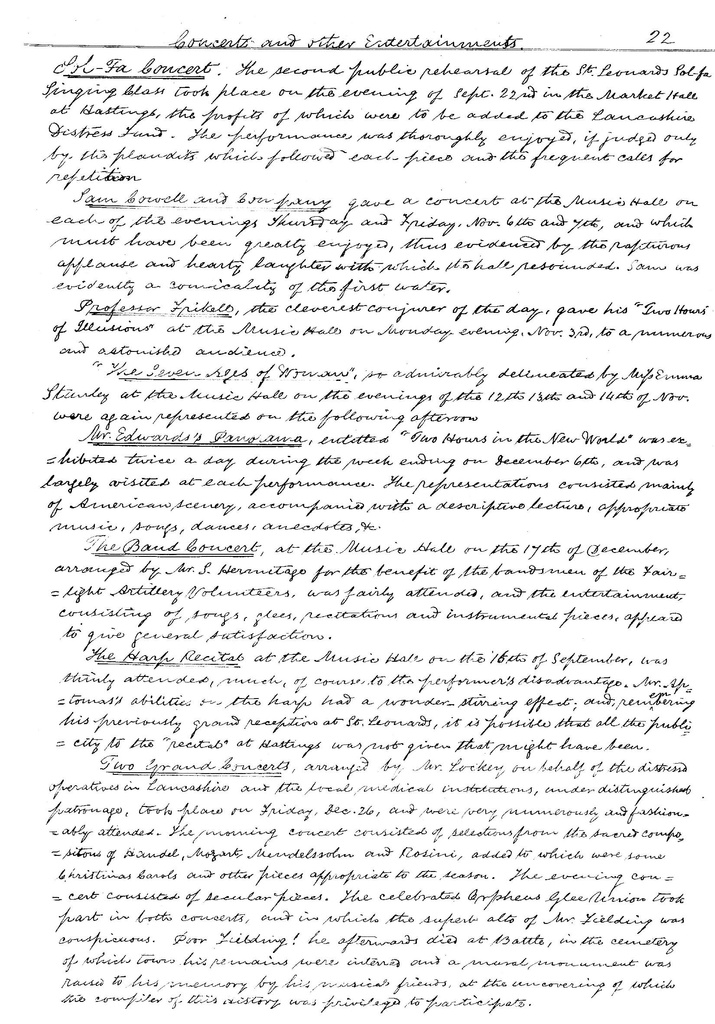 Concerts and other Entertainments. 22
Sol-Fa Concert. The second public rehearsal of the St. Leonards Sol-fa
Singing Class took place on the evening of Sept. 22nd in the Market Hall
at Hastings, the profits of which were to be added to the Lancashire
Distress Fund. The performance was thoroughly enjoyed, if judged only
by the plaudits which followed each piece and the frequent calls for
repetition
Sam Cowell and Company gave a concert at the Music Hall on
each of the evenings Thursday and Friday, Nov. 6th and 7th, and which
must have been greatly enjoyed, thus evidenced by the rapturous
applause and hearty laughter with which the hall resounded. Sam was
evidently a comicality of the first water.
Professor Frikell, the cleverest conjurer of the day, gave his "Two Hours
of Illusions" at the Music Hall on Monday evening, Nov. 3rd, to a numerous
and astonished audience.
"The Seven Ages of Woman", so admirably delineated by Miss Emma
Stanley at the Music Hall on the evenings of the 12th 13th and 14th of Nov.
were again represented on the following afternoon
Mr. Edwards's Panorama, entitled "Two Hours in the New World" was ex=
=hibited twice a day during the week ending on December 6th, and was
largely visited at each performance. The representations consisted mainly
of American scenery, accompanied with a descriptive lecture, appropriate
music, songs, dances, anecdotes, &c.
The Band Concert, at the Music Hall on the 17th of December,
arranged by Mr. S. Hermitage for the benefit of the bandsmen of the Fair=
=light Artillery Volunteers, was fairly attended, and the entertainment,
consisting of songs, glees, recitations and instrumental pieces, appeared
to give general satisfaction.
The Harp Recital at the Music Hall on the 16th of September, was
thinly attended, much, of course to the performer's disadvantage. Mr. Ap=
=tomas's abilities on the harp had a wonder-stirring effect; and, remembering
his previously grand reception at St. Leonards, it is possible that all the publi
=city to the "recital" at Hastings was not given that might have been.
Two Grand Concerts, arranged by Mr. Lockey on behalf of the distress
operatives in Lancashire and the local medical institutions, under distinguished
patronage, took place on Friday, Dec. 26, and were very numerously and fashion=
=ably attended. The morning concert consisted of selections from the sacred compo=
=sitons of Handel, Mozart, Mendelssohn and Rosini, added to which were some
Christmas Carols and other pieces appropriate to the season. The evening con=
=cert consisted of secular pieces. The celebrated Orpheus Glee Union took
part in both concerts, and in which the superb alto of Mr. Fielding was
conspicuous. Poor Fielding! he afterwards died at Battle, in the cemetery
of which town his remains were interred and a mural monument was
raised to his memory by his musical friends, at the uncovering of which
the compiler of this history was privileged to participate.